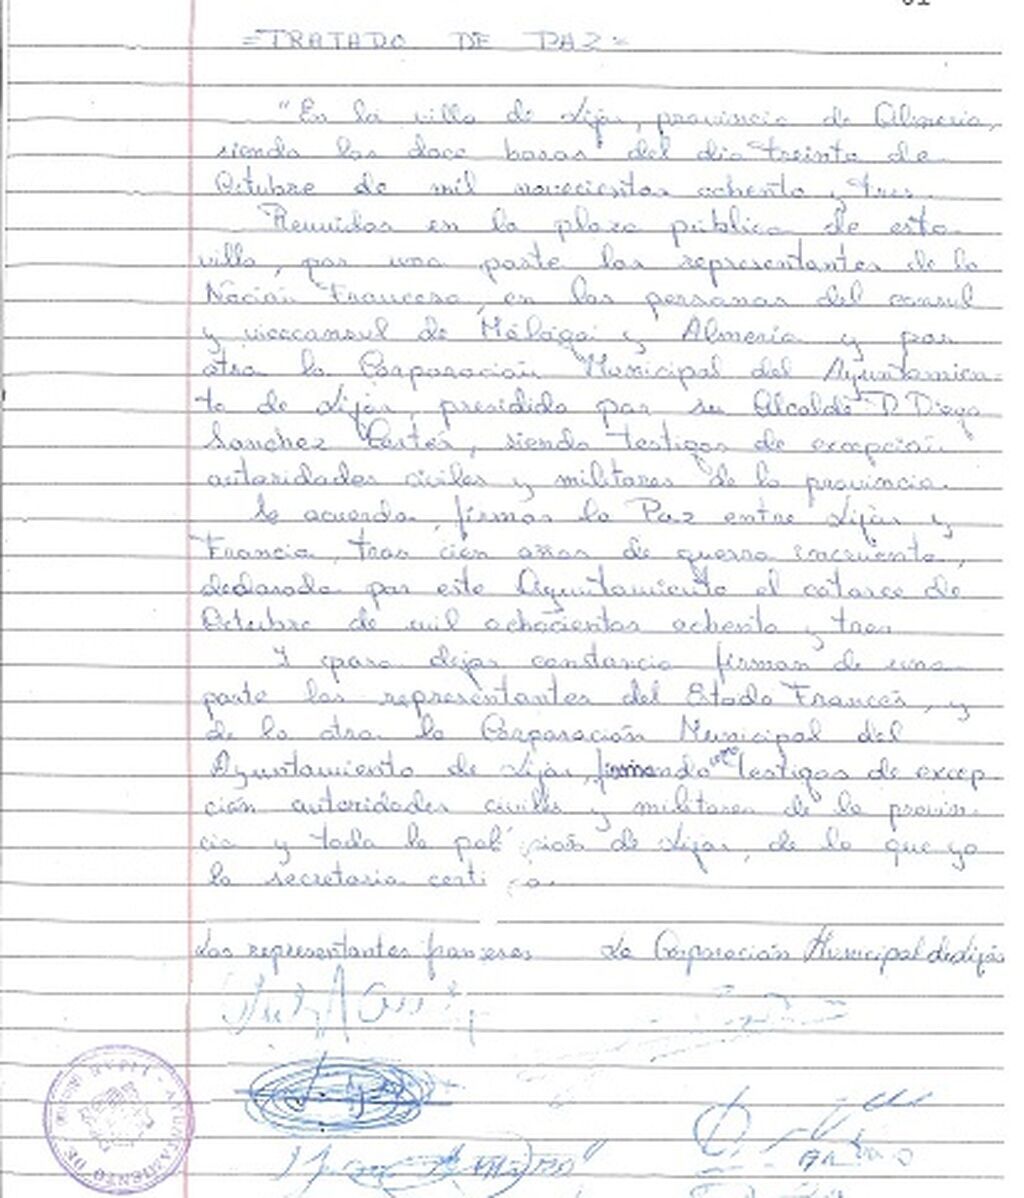 =TRATADO DE PAZ=
"En la villa de Líjar, provincia de Almeria,
siendo las doce horas del dia treinta de
Octubre de mil novecientos ochenta y tres.
Reunidos en la plaza pública de esta
villa, por una parte los representantes de la
Nación Francesa, en las personas del consul
y viceconsul de Málaga y Almería y por
otra la Corporación Municipal del Ayuntamien-
to de Líjar, presidida por su Alcalde D. Diego
Sanchez Cortés, siendo testigos de excepción
autoridades civiles y militares de la provincia.
Se acuerda firmar la Paz entre Líjar y
Francia, tras cien años de guerra incruenta,
declarada por este Ayuntamiento el catorce de
Octubre de mil ochocientos ochenta y tres
Y para dejar constancia firman de una
parte los representantes del Estado Francés, y
de la otra la Corporación Municipal del
Ayuntamiento de Líjar, firmando como testigos de excep-
ción autoridades civiles y militares de la provin-
cia y toda la población de Líjar, de lo que yo
la secretaria certifico.
Los representantes franceses La Corporación Municipal de Líjar
AYUNTAMIENTO DE LIJAR